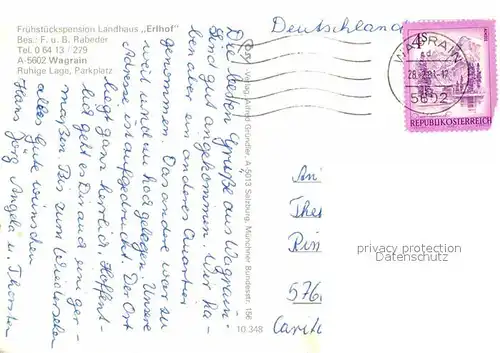 Frühstückspension Landhaus „Erlhof"
Bes.: F. u. B. Rabeder
Tel. 0 64 13 / 279
A-5602 Wagrain
Ruhige Lage, Parkplatz
Die besten Grüße aus Wagrain.
Sind gut angekommen. Wir ha-
ben aber ein anderes Quartier
genommen. Das andere war zu
weit und zu hoch gelegen. Unsere
Adresse ist aufgedruckt. Der Ort
liegt ganz herrlich. Hoffent-
lich geht es Dir auch einiger-
maßen. Bis zum Wiedersehen
alles Gute wünschen
Hans Jörg, Angela u. Thorsten
Verlag Alfred Gründler, A-5013 Salzburg, Münchner Bundesstr. 156
10.348
Deutschland
WAGRAIN
5602
4 S
REPUBLIK ÖSTERREICH
An
576
privacy protection
Oldthing.de